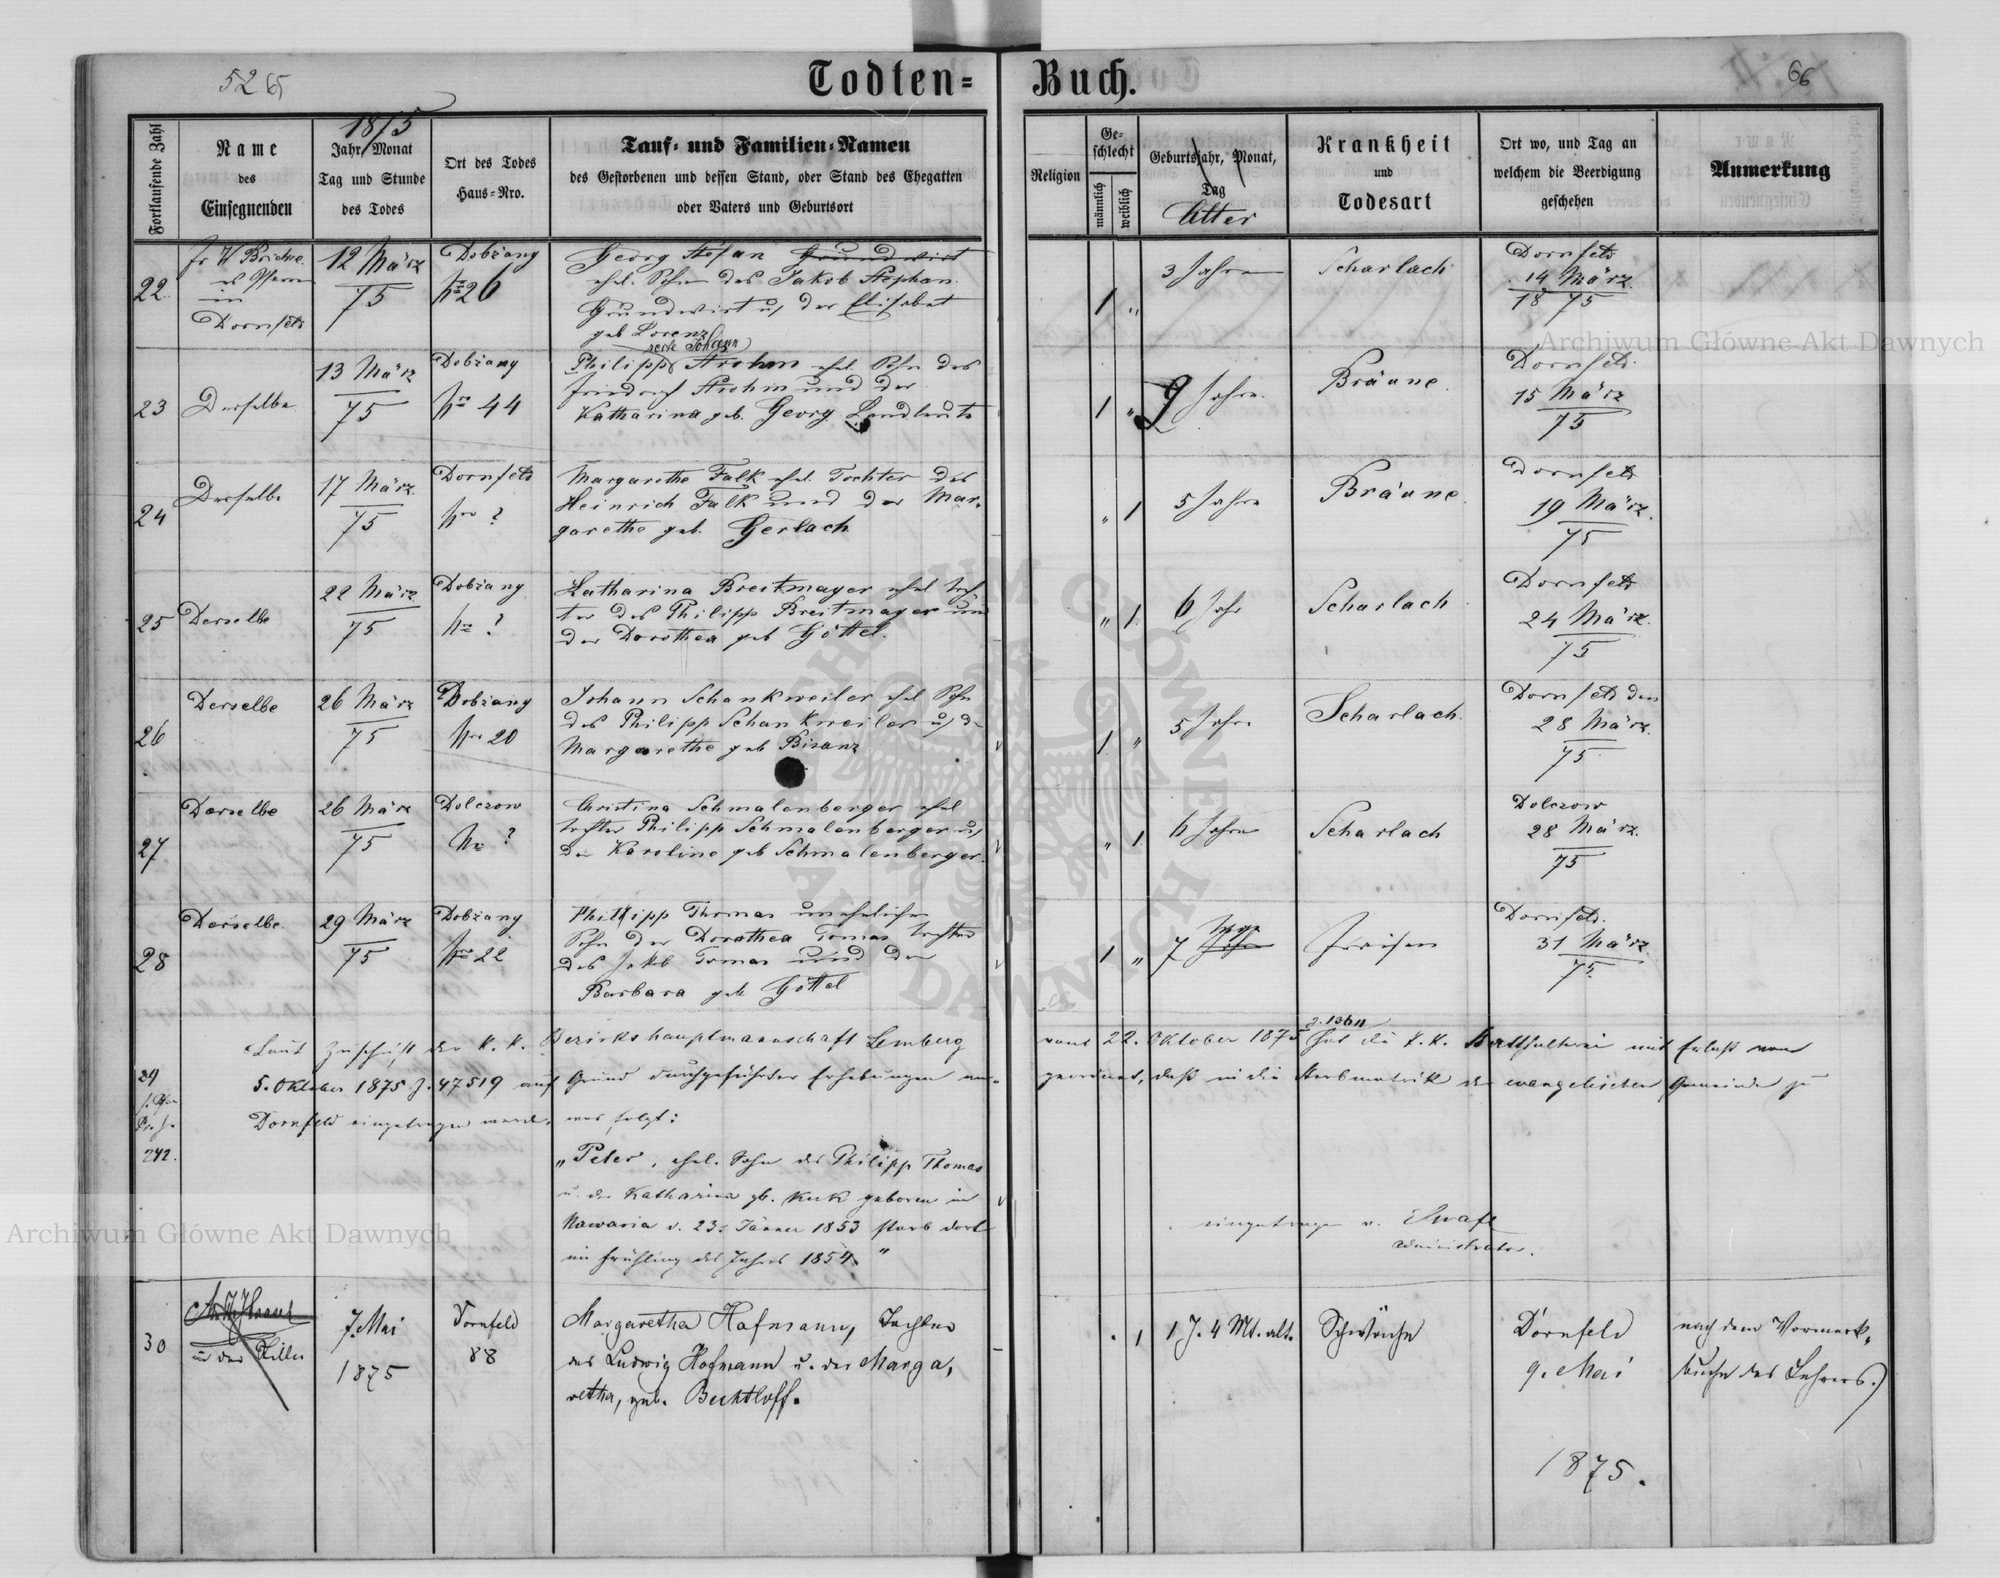 52 65
Todten-
Buch.
66
Fortlaufende Zahl
Name
des
Einsegnenden
1875
Jahr, Monat
Tag und Stunde
des Todes
Ort des Todes
Haus-Nro.
Tauf- und Familien-Namen
des Gestorbenen und dessen Stand, oder Stand des Ehegatten
oder Vaters und Geburtsort
Religion
Ge-
schlecht
männlich
weiblich
Geburtsjahr, Monat,
Tag
Alter
Krankheit
und
Todesart
Ort wo, und Tag an
welchem die Beerdigung
geschehen
Anmerkung
22.
in
Dornfeld
12 März
75
Dobżany
Nro 26
Georg Stefan Grundwirt
ehel. Sohn des Jakob Stephan
Grundwirt u, der Elisabet
geb Lorenz
1 "
3 Jahre
Scharlach
Dornfeld
14 März
18 75
23
Derselbe
13 März
75
Dobżany
Nro 44
recte Johann
Philipp Strohm ehel Sohn des
Friedrich Strohm und der
Katharina geb. Georg
1 "
9 Jahre.
Bräune.
Dornfeld.
15 März
75
24
Derselbe
17 März.
75
Dornfeld
Nro ?
Margarethe Falk ehel. Tochter des
Heinrich Falk und der Mar-
garethe geb. Gerlach
" 1
5 Jahre
Bräune
Dornfeld
19 März.
75
25
Derselbe
22 März
75
Dobżany
Nro ?
Katharina Breitmayer ehel Toch
ter des Philipp Breitmayer und
der Dorothea geb Göttel.
" 1.
6 Jahr
Scharlach
Dornfeld
24 März.
75
26
Derselbe
26 März
75
Dobżany
Nro 20
Johann Schankweiler ehel Sohn
des Philipp Schankweiler u, d
Margarethe geb Bisanz
1 "
5 Jahre
Scharlach.
Dornfeld den
28 März.
75
27
Derselbe
26 März
75
Dolczow
Nro ?
Christina Schmalenberger ehel
Tochter Philipp Schmalenberger u,
der Karoline geb Schmalenberger.
" 1
6 Jahre
Scharlach
Dolczow
28 März.
75
28
Derselbe.
29 März
75
Dobżany
Nro 22
Philipp Thomas uneheliche
Sohn der Dorothea Tomas Tochter
des Jakob Tomas und der
Barbara geb Göttel
1 "
7 Tage
Fraisen
Dornfeld.
31 März
75.
29
242.
Laut Zuschrift der k. k. Bezirkshauptmannschaft Lemberg
vom 22. Oktober 1875 hat die k. k. Statthalterei mit Erlaß vom
5. Oktober 1875 Z. 47519 auf Grund durchgeführter Erhebungen an-
geordnet, daß in die Sterbmatrik der evangelischen Gemeinde zu
Dornfeld eingetragen werde, was folgt:
„Peter, ehel. Sohn des Philipp Thomas
u. der Katharina gb. Kuk geboren in
Nawaria d. 23. Jänner 1853 starb dort
im Frühling des Jahres 1854 "
eingetragen v.
Administrator.
30
7. Mai
1875
Dornfeld
88
Margaretha Hofmann, Tochter
des Ludwig Hofmann u. der Marga,
retha, geb. Bechtloff.
. 1
1 J. 4 Mt. alt.
Schwäche
Dornfeld
9. Mai
1875.
nach dem Vormerk,
buche des Lehrers.)
Archiwum Główne Akt Dawnych
Archiwum Główne Akt Dawnych
ARCHIWUM GŁÓWNE AKT DAWNYCH